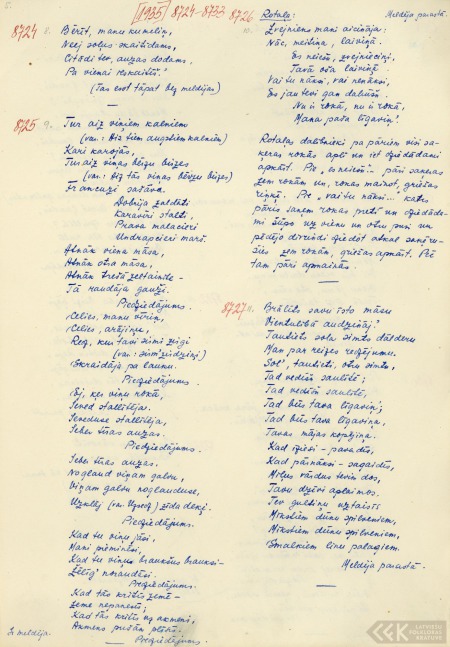 5.
[1935] 8724-8733
8724 8. Bērīt, manu kumeliņ,
Neej soļus skaitīdams,
Citādi tev auzas dodams
Pa vienai
(Tas viss tāpat bez meldijas)
8725 9. Tur aiz viņiem kalniem
(var.: Aiz tiem augstiem kalniem)
Kari karojās,
Tur aiz viņas bēŗzu birzes
(var.: Aiz tās viņas bēŗzu birzes)
Francuži sašāva.
Dobrija zaldāti
Karavīri stalti,
Prava malacieri
Undrapcieri marš.
Atnāk viena māsa,
Atnāk otra māsa,
Atnāk trešā zeltainīte -
Tā raudāja gauži.
Piedziedājums.
Celies, manu vīriņ,
Celies, arājiņ,
Reg, kur tavi sirmi zirgi
(var.: sirmi zirdziņi)
Skraidāja pa lauku.
Piedziedājums.
Ej, ņem viņu rokā,
Ieved stallītēja.
Ieveduse stallītēja,
Ieber tīras auzas.
Piedziedājums.
Ieber tīras auzas.
Noglaud viņam galvu,
Viņam galvu noglauduse,
Uzklāj (var. Uzsedz) zīda deķi.
Piedziedājums.
Kad tu viņu jāsi,
Mani pieminēsi,
Kad tu viņus braukšus brauksi -
Žēlīgi noraudāsi.
Piedziedājums.
Kad tās kritīs zemē -
Zeme nepanesīs;
Kad tās kritīs uz akmeni,
Akmens pušām plīsīs.
Piedziedājums.
Ir meldija.
8726 10. Rotaļa: Meldija parastā.
Zvejnieks mani aicināja:
Nāc, meitiņa, laiviņā.
Es neiešu, zvejnieciņ,
Tavā oša laiviņā
Vai tu nāksi, vai nenāksi,
Es jau tevi gan dabūšu.
Nu ir rokā, nu ir rokā,
Mana paša līgaviņ'.
Rotaļas dalībnieki pa pāriem visi sa-
ķeras rokās aplī un iet dziedādami
apkārt. Pie „es neiešu" pāri saķeras
zem rokām un, rokas mainot, griežas
riņķī. Pie „vai tu nāksi" katrs
pāris saņem rokas pretī un dziedāda-
mi šūpo uz vienu un otru pusi un
pēdējo divrindi dziedot atkal saņēmu-
šies zem rokām, griežas apkārt. Pēc
tam pāri apmainās.
8727 11. Brālīts savu īsto māsu
Vientulībā audzināj'.
Tautiets sola simts dālderu
Man par reizes redzējumu.
Sol', tautieti, otru simtu,
Tad vedīsi saulītē;
Tad vedīsi saulītē,
Tad būs tava līgaviņ';
Tad būs tava līgaviņa,
Tavas mājas kopējiņa.
Kad iziesi - pavadīs,
Kad pārnāksi - sagaidīs,
Mīļus vārdus tevim dos,
Tavu dzīvi aplaimos.
Tev gultiņu uztaisīs
Mīkstiem dūnu spilveniem,
Mīkstiem dūnu spilveniem,
Smalkiem linu palagiem.
Meldija parastā.
LATVIEŠU
FOLKLORAS
KRĀTUVE